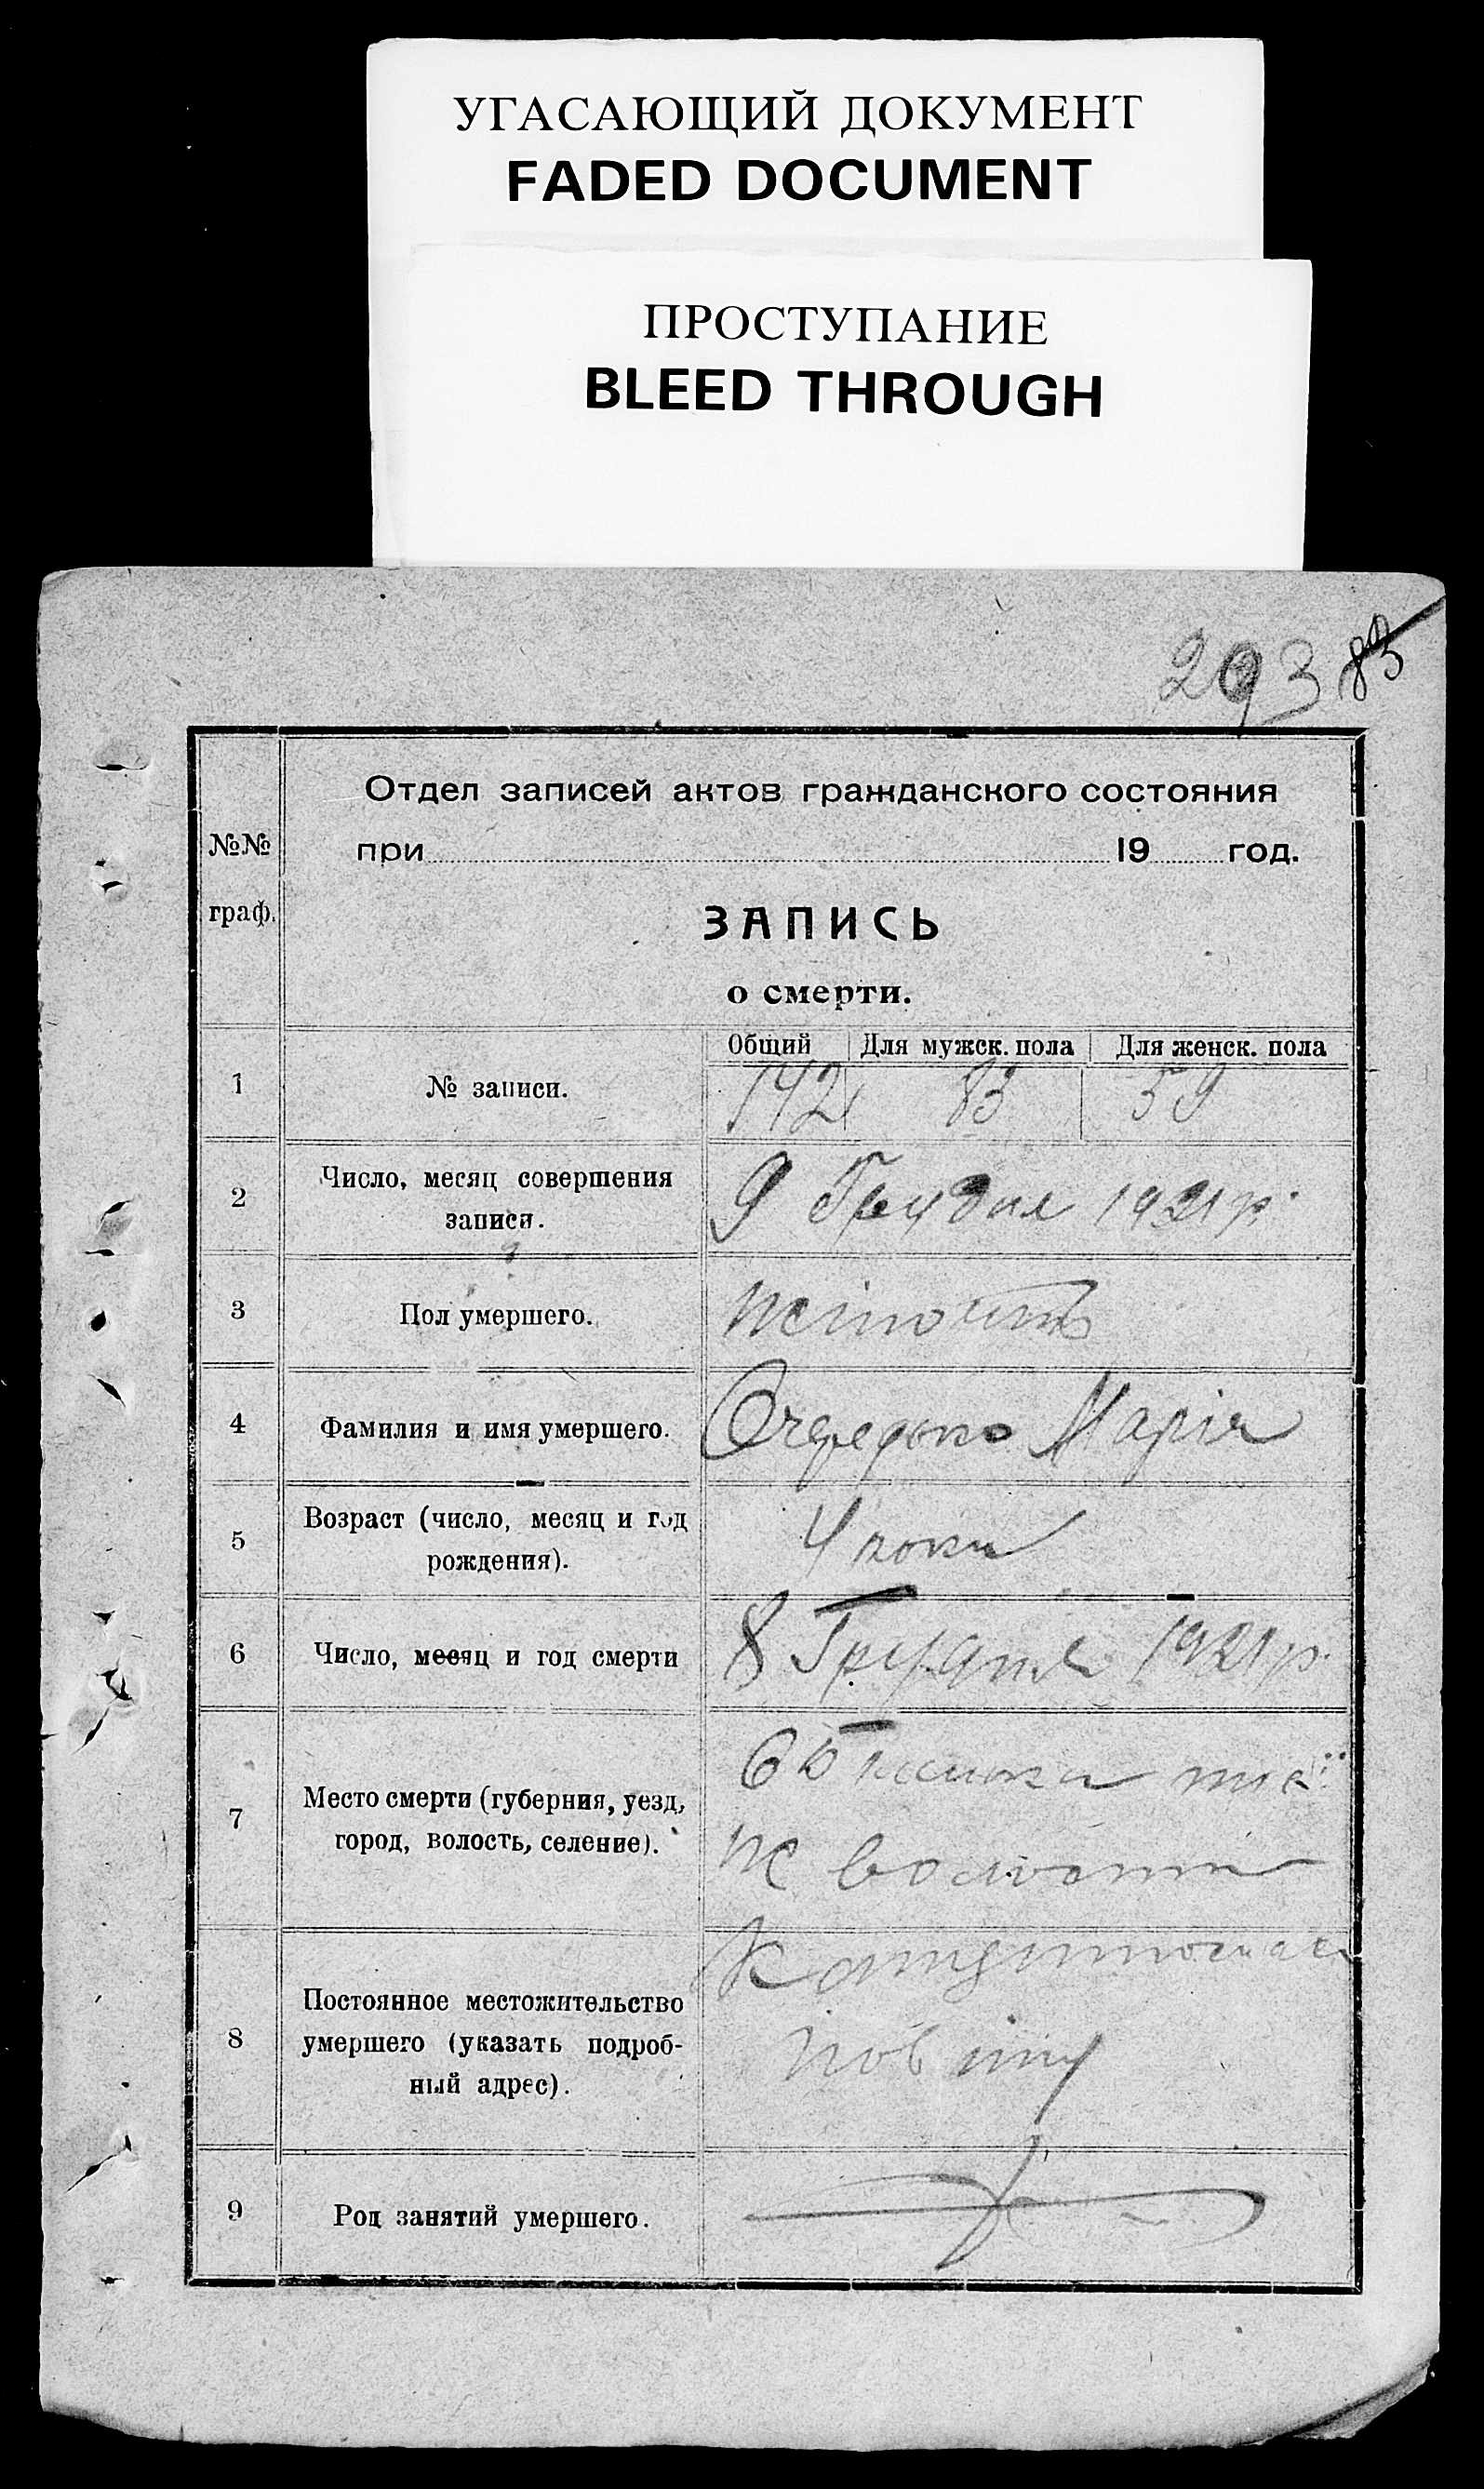 УГАСАЮЩИЙ ДОКУМЕНТ
FADED DOCUMENT
ПРОСТУПАНИЕ
BLEED THROUGH
293 83
№№ граф.
Отдел записей актов гражданского состояния
при 19 год.
ЗАПИСЬ
о смерти.
Общий Для мужск. пола Для женск. пола
1 № записи. 142 83 59
2 Число, месяц совершения
записи.
9 Грудня 1921 р.
3 Пол умершего.
4 Фамилия и имя умершего. Очередько Марія
5 Возраст (число, месяц и год
рождения).
4 роки
6 Число, месяц и год смерти 8 Грудня 1921 р.
7 Место смерти (губерния, уезд,
город, волость, селение).
тиєї
ж волости
8 Постоянное местожительство
умершего (указать подроб-
ный адрес).
повіту
9 Род занятий умершего.